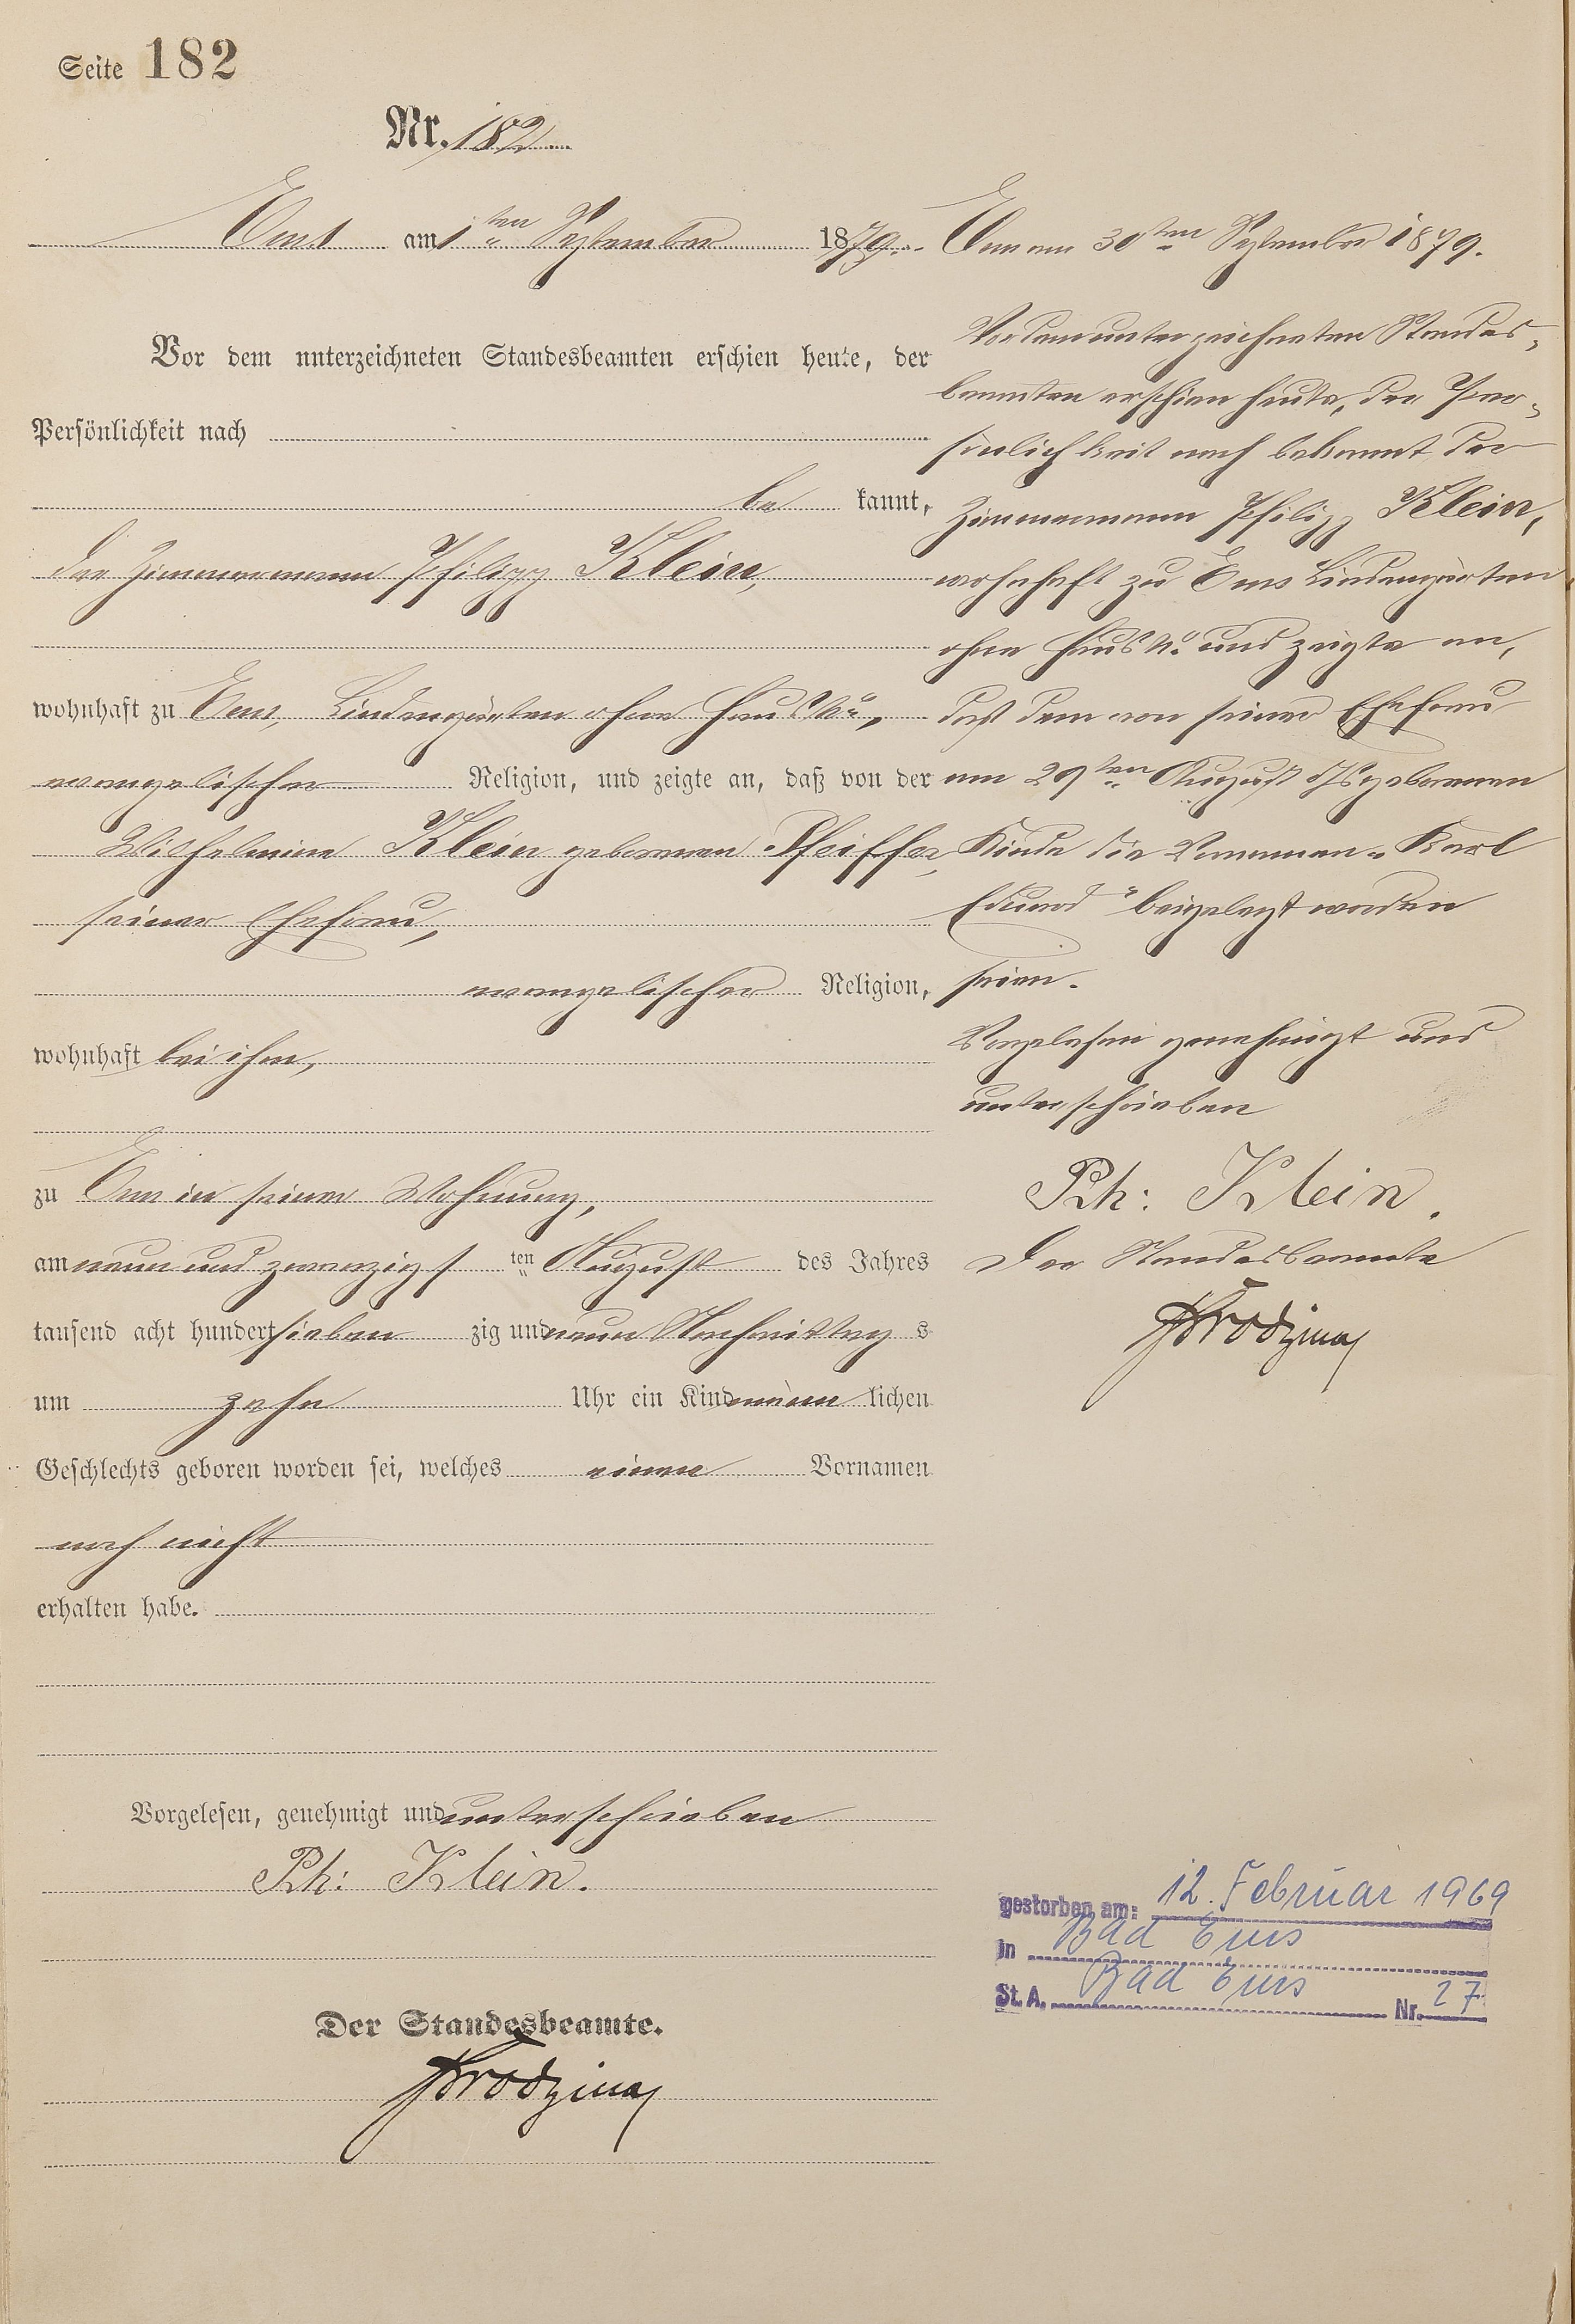 Seite 182
Nr. 182
Ems am 1ten September 1879.
Vor dem unterzeichneten Standesbeamten erschien heute, der
Persönlichkeit nach
be kannt,
der Zimmermann Philipp Klein,
wohnhaft zu Ems, Lindengärten ohne Haus No.,
evangelischer Religion, und zeigte an, daß von der
Wilhelmine Klein geborenen Pfeiffer,
seiner Ehefrau,
evangelischer Religion,
wohnhaft bei ihm,
zu Ems in seiner Wohnung,
am neun und zwanzigsten August des Jahres
tausend acht hundert sieben zig und neun Nachmittag s
um zehn Uhr ein Kind männ lichen
Geschlechts geboren worden sei, welches einen Vornamen
noch nicht
erhalten habe.
Vorgelesen, genehmigt und unterschrieben
Ph: Klein.
Der Standesbeamte.
Ems am 30ten September 1879.
Vor dem unterzeichneten Standes-
beamten erschien heute, der Per-
sönlichkeit nach bekannt, der
Zimmermann Philipp Klein,
wohnhaft zu Ems Lindengärten
ohne Haus No. und zeigte an,
daß dem von seiner Ehefrau
am 29ten August ds geborenen
Kinde die Vornamen „Karl
Eduard" beigelegt worden
seien.
Vorgelesen genehmigt und
unterschrieben
Ph: Klein.
Der Standesbeamte
gestorben am: 12. Februar 1969
in Bad Ems
St. A. Bad Ems Nr. 27